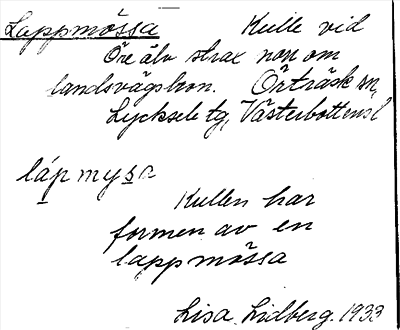 Lappmössa Kulle vid
Öre älv strax non om
landsvägsbron. Örträsk sn,
Lycksele tg, Västerbottens l
láp mysa
Kullen har
formen av en
lappmössa
Lisa Lidberg. 1933